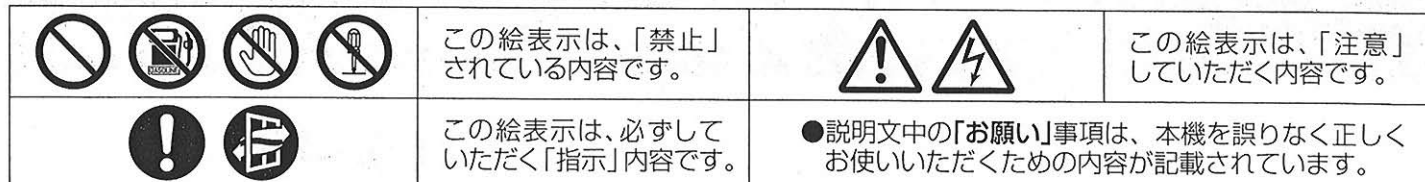 GASOLINE
この絵表示は、「禁止」
されている内容です。
この絵表示は、「注意」
していただく内容です。
この絵表示は、必ずして
いただく「指示」内容です。
●説明文中の「お願い」事項は、本機を誤りなく正しく
お使いいただくための内容が記載されています。